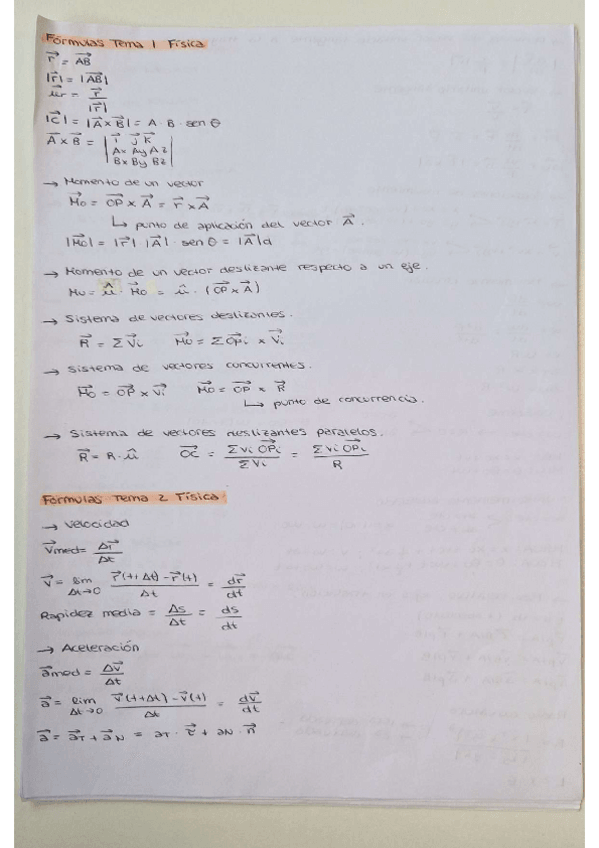 Fórmulas Tema 1 Física
r⃗ = AB⃗
|r⃗| = |AB⃗|
u⃗r = r⃗ / |r⃗|
|C⃗| = |A⃗ x B⃗| = A · B · sen θ
A⃗ x B⃗ = | i⃗ j⃗ k⃗
Ax Ay Az
Bx By Bz |
→ Momento de un vector
M⃗o = OP⃗ x A⃗ = r⃗ x A⃗
↳ punto de aplicación del vector A⃗.
|M⃗o| = |r⃗| · |A⃗| · sen θ = |A⃗|d
→ Momento de un vector deslizante respecto a un eje.
Mu = û · M⃗o = û · (OP⃗ x A⃗)
→ Sistema de vectores deslizantes.
R⃗ = Σ V⃗i M⃗o = Σ OP⃗i x V⃗i
→ Sistema de vectores concurrentes.
M⃗o = OP⃗ x V⃗i M⃗o = OP⃗ x R⃗
↳ punto de concurrencia.
→ Sistema de vectores deslizantes paralelos.
R⃗ = R · û OC⃗ = Σ Vi OP⃗i / Σ Vi = Σ Vi OP⃗i / R
Fórmulas Tema 2 Física
→ Velocidad
V⃗med = Δr⃗ / Δt
V⃗ = lim Δt→0 r⃗(t+Δt) - r⃗(t) / Δt = dr⃗ / dt
Rapidez media = Δs / Δt = ds / dt
→ Aceleración
a⃗med = Δv⃗ / Δt
a⃗ = lim Δt→0 v⃗(t+Δt) - v⃗(t) / Δt = dv⃗ / dt
a⃗ = a⃗T + a⃗N = aT · τ⃗ + aN · n⃗